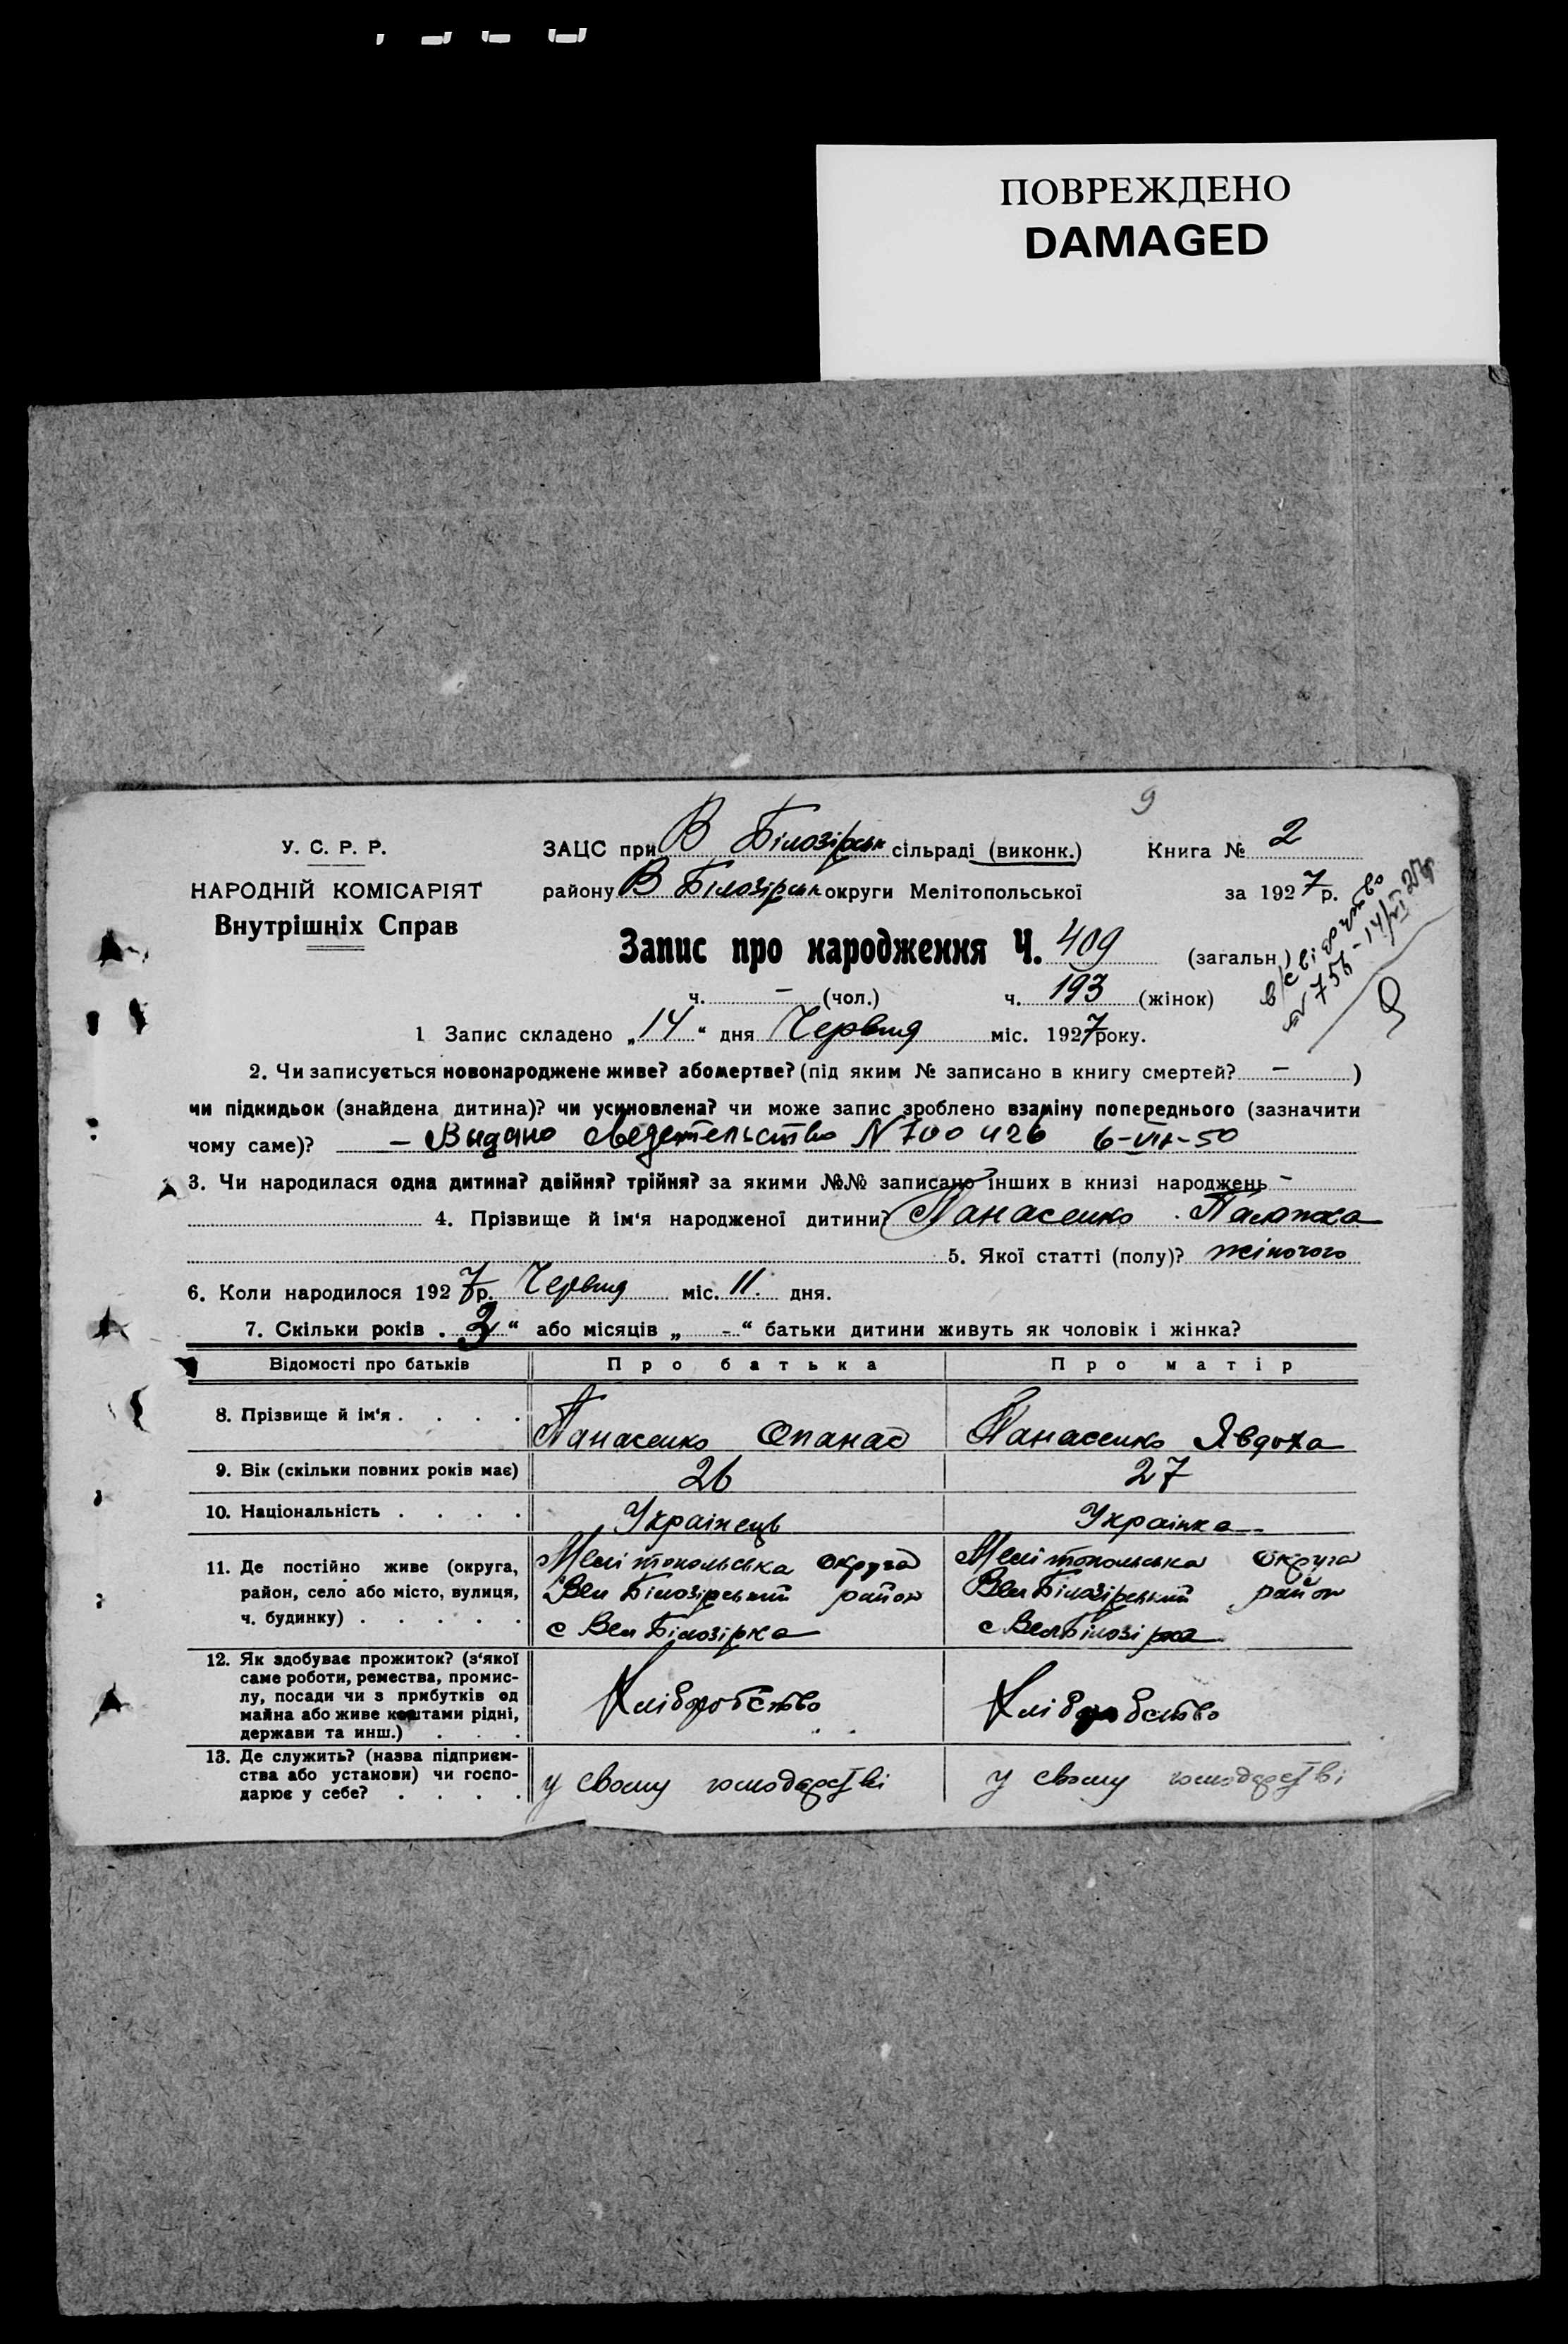 ПОВРЕЖДЕНО
DAMAGED
9
У. С. Р. Р.
НАРОДНІЙ КОМІСАРІЯТ
Внутрішніх Справ
ЗАЦС при В Білозірськ сільраді (виконк.)
Книга № 2
району В Білозірськ округи Мелітопольської
за 1927 р.
Запис про народження Ч. 409 (загальн.)
ч. – (чол.) ч. 193 (жінок)
1 Запис складено „14“ дня Червня міс. 1927 року.
2. Чи записується новонароджене живе? або мертве? (під яким № записано в книгу смертей? – )
чи підкидьок (знайдена дитина)? чи усиновлена? чи може запис зроблено взаміну попереднього (зазначити
чому саме)? – Видано сведетельство N 700426 6-VII-50
3. Чи народилася одна дитина? двійня? трійня? за якими №№ записано інших в книзі народжень –
4. Прізвище й ім'я народженої дитини? Панасенко Палажка
5. Якої статті (полу)? жіночого
6. Коли народилося 1927 р. Червня міс. 11. дня.
7. Скільки років „3“ або місяців „–“ батьки дитини живуть як чоловік і жінка?
Відомості про батьків Про батька Про матір
8. Прізвище й ім'я . . . . Панасенко Опанас Панасенко Явдоха
9. Вік (скільки повних років має) 26 27
10. Національність . . . . Українець Українка
11. Де постійно живе (округа, Мелітопольська округа Мелітопольська округа
район, село або місто, вулиця, Вел Білозірський район Вел Білозірський район
ч. будинку) . . . . . с Вел Білозірка с Вел Білозірка
12. Як здобуває прожиток? (з'якої
саме роботи, ремества, промис-
лу, посади чи з прибутків од Хліборобство Хліборобство
майна або живе коштами рідні,
держави та инш.) . . .
13. Де служить? (назва підприєм-
ства або установи) чи госпо- у свому господарстві у свому господарстві
дарює у себе? . . . .